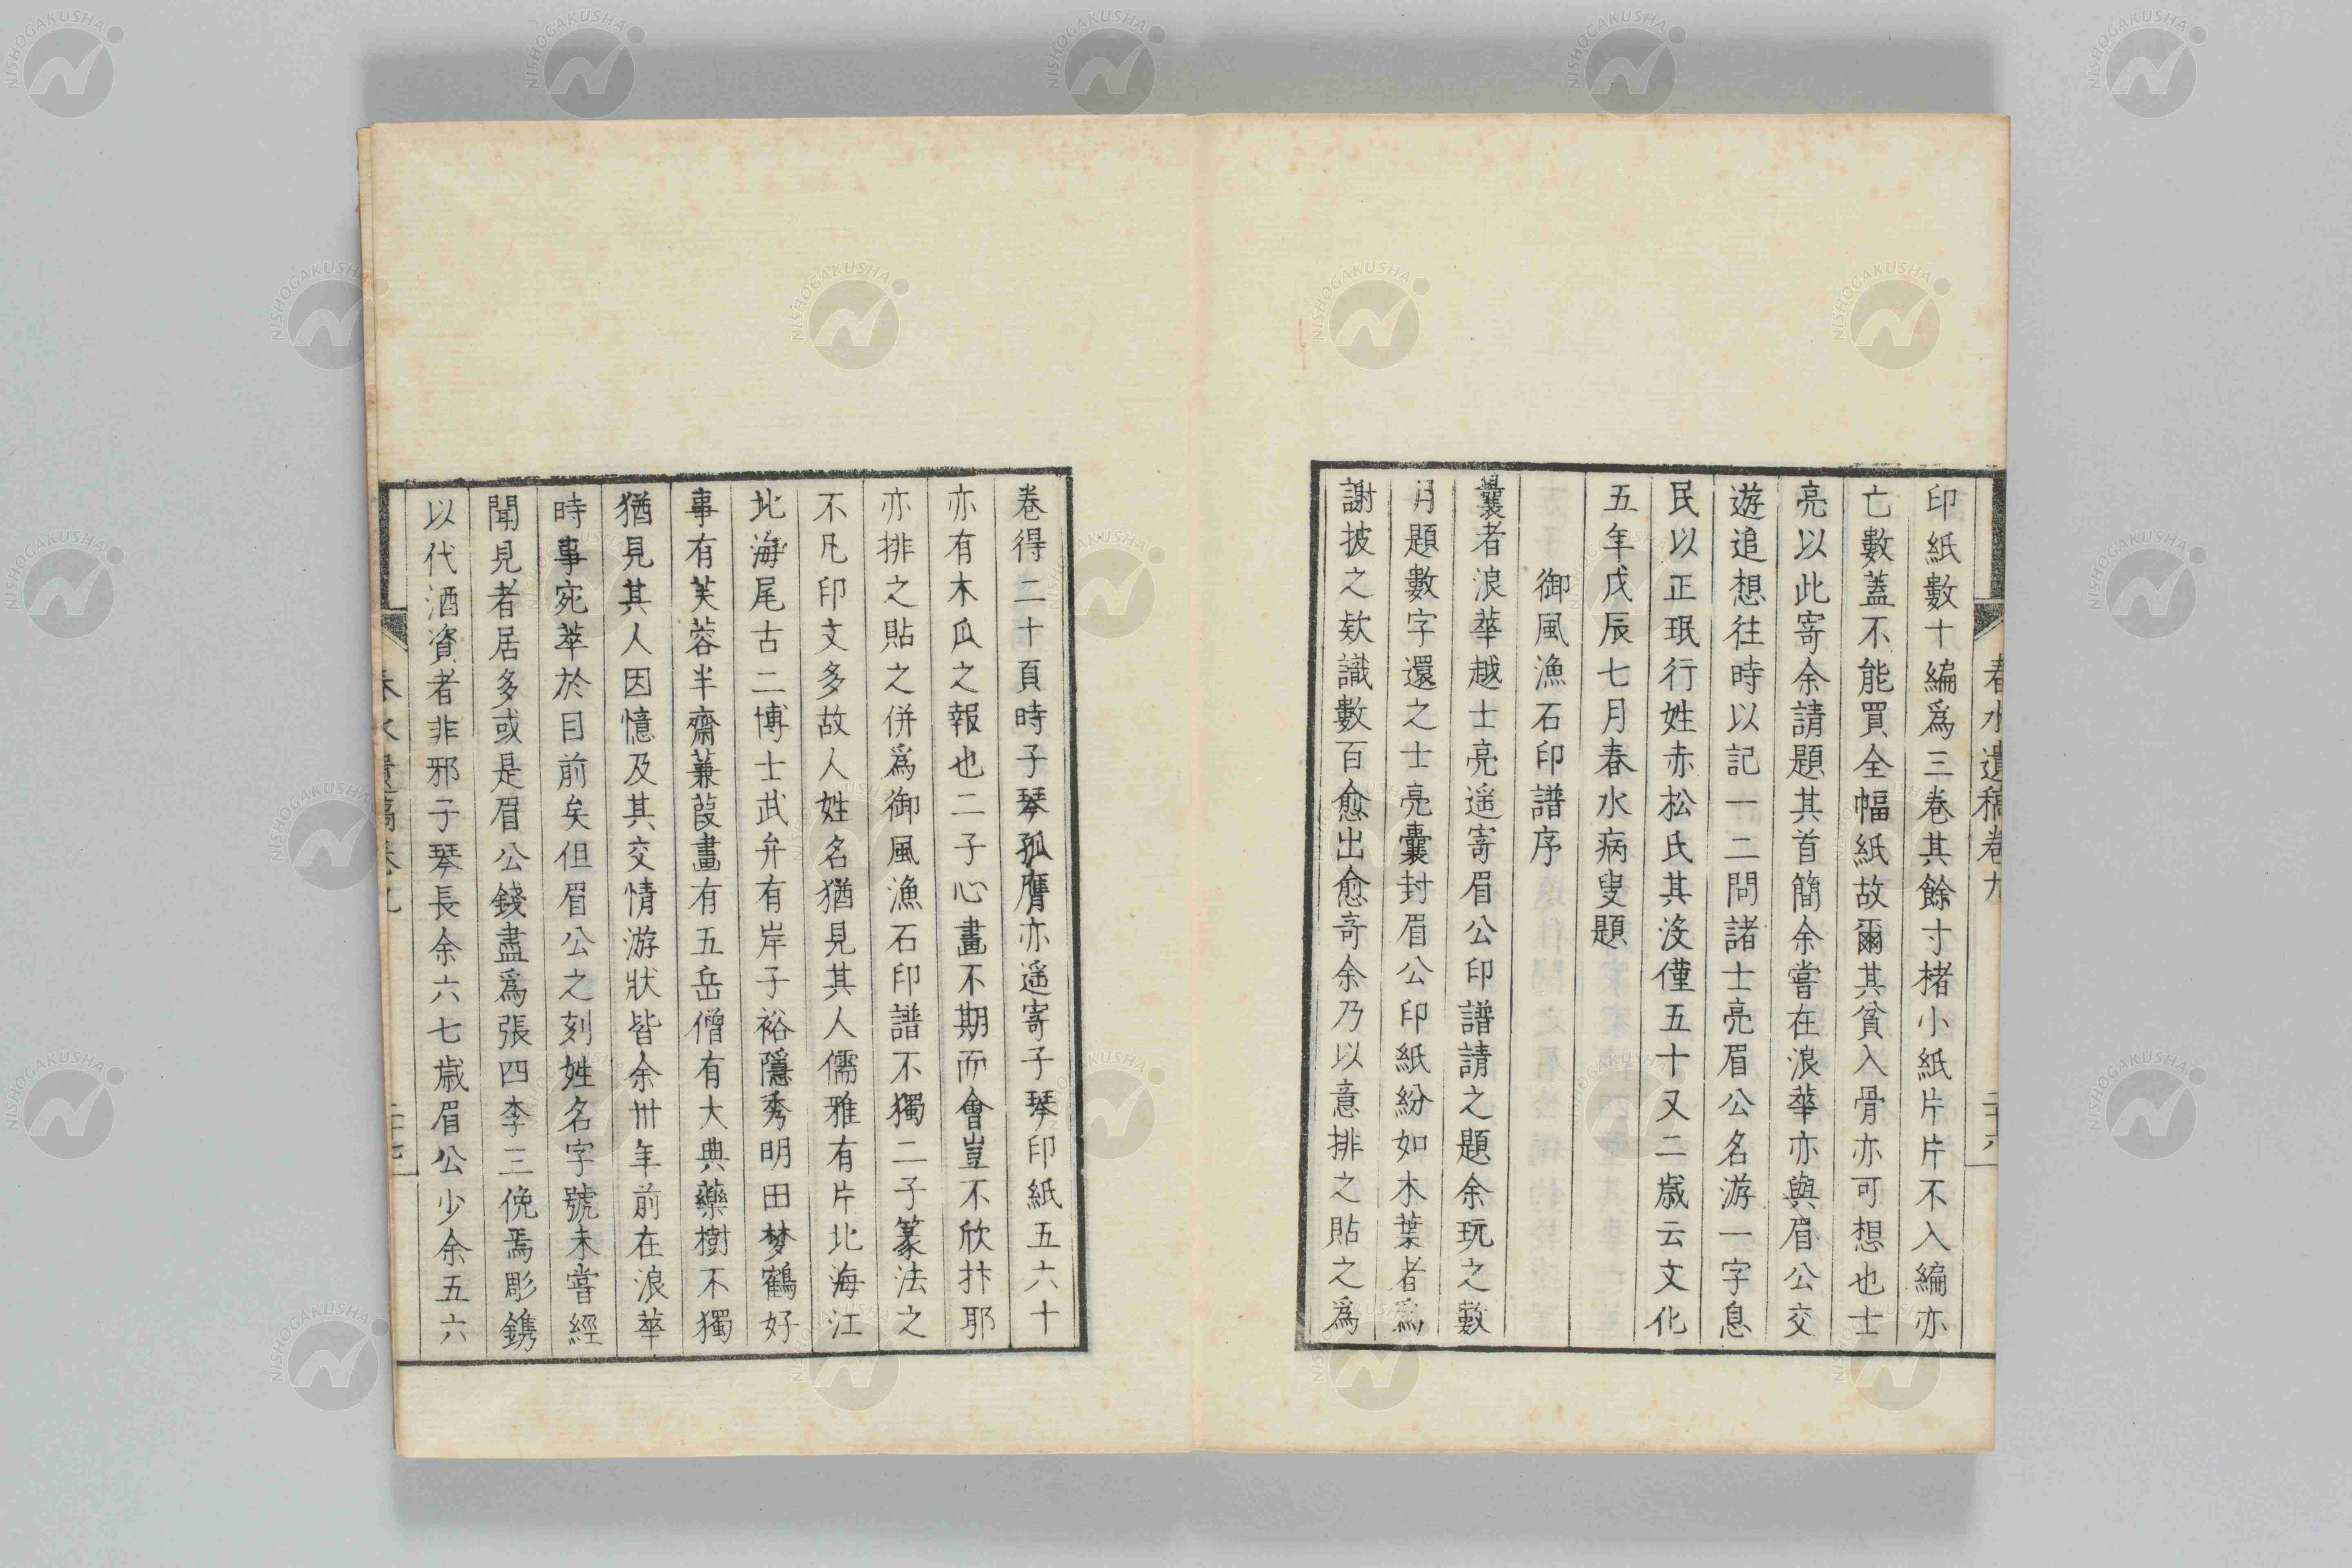 春水遺稿卷九
二十六
印紙數十編爲三卷其餘寸楮小紙片片不入編亦
亡數蓋不能買全幅紙故爾其貧入骨亦可想也士
亮以此寄余請題其首簡余嘗在浪華亦與眉公交
遊追想往時以記一二問諸士亮眉公名游一字息
民以正珉行姓赤松氏其沒僅五十又二歲云文化
五年戊辰七月春水病叟題
御風漁石印譜序
曩者浪華越士亮遥寄眉公印譜請之題余玩之數
月題數字還之士亮囊封眉公印紙紛如木葉者爲
謝披之欵識數百愈出愈奇余乃以意排之貼之爲
卷得二十頁時子琴孤鴈亦遥寄子琴印紙五六十
亦有木瓜之報也二子心畫不期而會豈不欣抃耶
亦排之貼之併爲御風漁石印譜不獨二子篆法之
不凡印文多故人姓名猶見其人儒雅有片北海江
北海尾古二博士武弁有岸子裕隱秀明田夢鶴好
事有芙蓉半齋蒹葭畫有五岳僧有大典藥樹不獨
猶見其人因憶及其交情游狀皆余卅年前在浪華
時事宛萃於目前矣但眉公之刻姓名字號未嘗經
聞見者居多或是眉公錢盡爲張四李三俛焉彫鐫
以代酒資者非邪子琴長余六七歲眉公少余五六
春水遺稿卷九
二十七
NISHOGAKUSHA